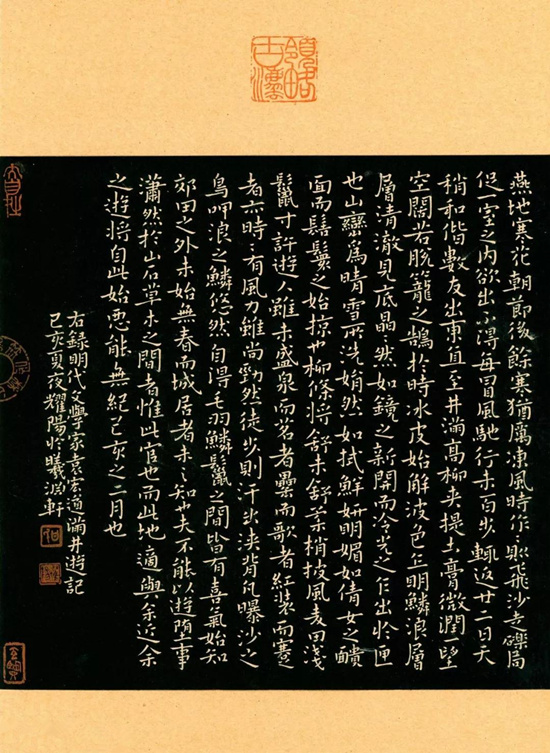 領略古灋
燕地寒花朝節後餘寒猶厲凍風時作:則飛沙走礫局
促一室之內欲出不得每冒風馳行未百步輒返廿二日天
稍和偕數友出東直至井滿高柳夾提土膏微潤望
空闊若脫籠之鵠於時冰皮始解波色乍明鱗浪層
層清澈見底晶晶然如鏡之新開而冷光之乍出於匣
也山巒爲晴雪所洗娟然如拭鮮妍明媚如倩女之靧
面而髻鬟之始掠也柳條將舒未舒柔梢披風麦田淺
鬣寸許遊人雖未盛泉而茗者罍而歌者紅裝而蹇
者亦時:有風力雖尚勁然徒步則汗出浹背凡曝沙之
鳥呷浪之鱗悠然自得毛羽鱗鬣之間皆有喜氣始知
郊田之外未始無春而城居者未之知也夫不能以遊墮事
瀟然於山石草木之間者惟此官也而此地適與余近余
之遊將自此始惡能無紀己亥之二月也
右錄明代文學家袁宏道滿井遊記
己亥夏夜耀陽於曦潤軒